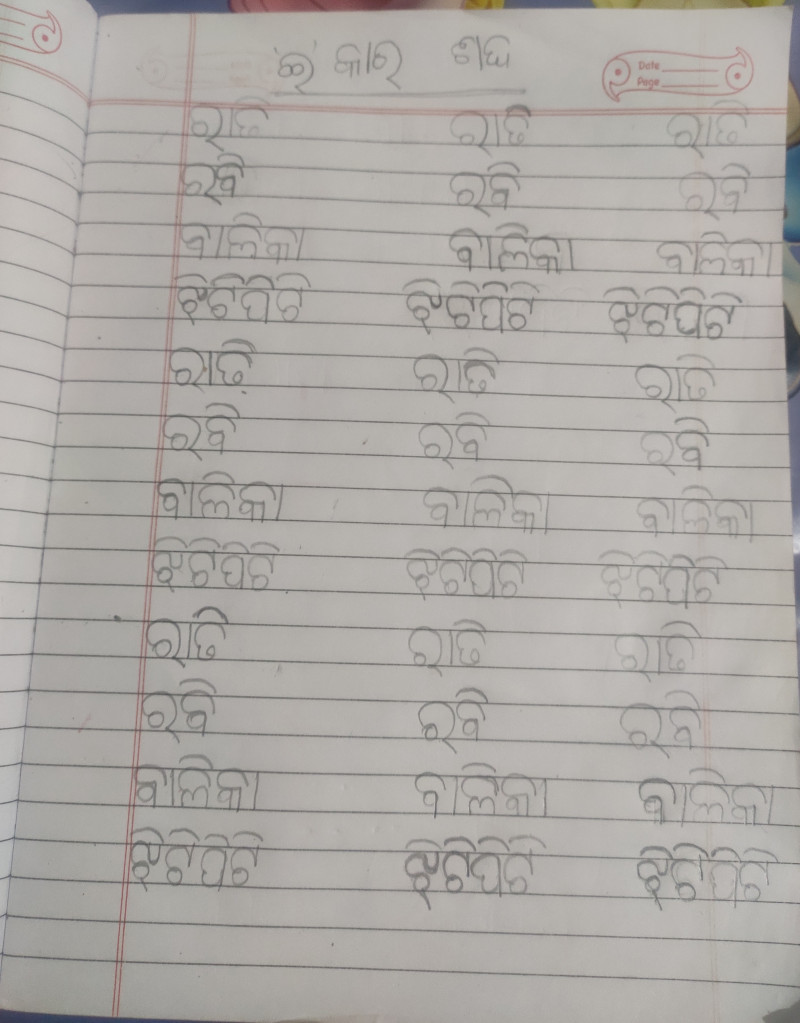 'ଇ' କାର ଶବ୍ଦ
Date
Page
ରାତି ରାତି ରାତି
ରବି ରବି ରବି
ବାଲିକା ବାଲିକା ବାଲିକା
ଝିଟିପିଟି ଝିଟିପିଟି ଝିଟିପିଟି
ରାତି ରାତି ରାତି
ରବି ରବି ରବି
ବାଲିକା ବାଲିକା ବାଲିକା
ଝିଟିପିଟି ଝିଟିପିଟି ଝିଟିପିଟି
ରାତି ରାତି ରାତି
ରବି ରବି ରବି
ବାଲିକା ବାଲିକା ବାଲିକା
ଝିଟିପିଟି ଝିଟିପିଟି ଝିଟିପିଟି